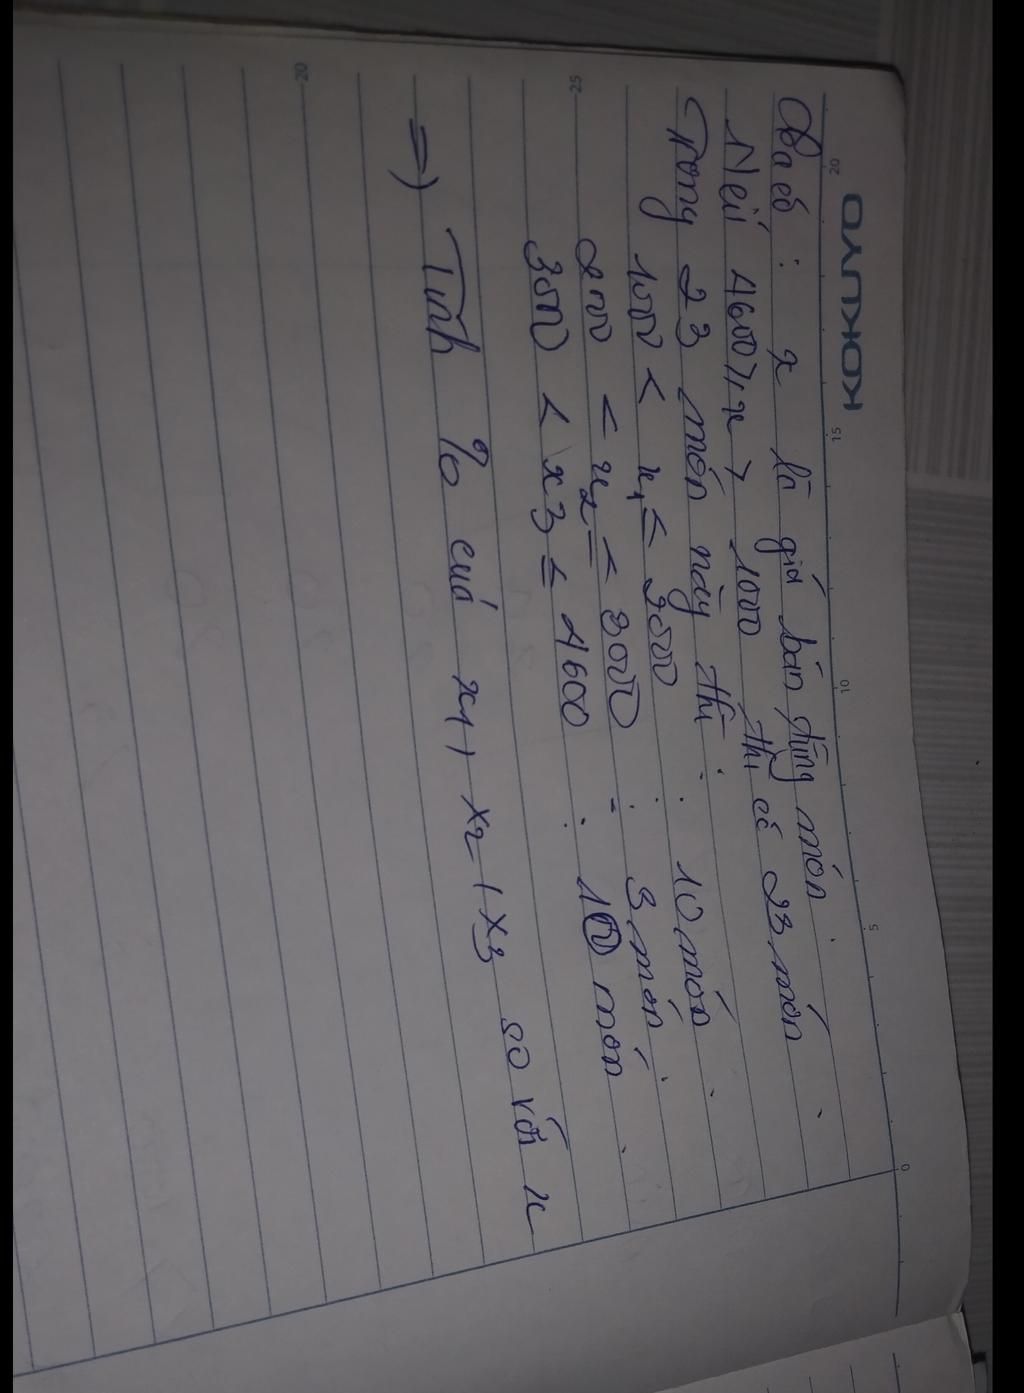 KOKUYO
20 15 10 5 0
Ta có : x là giá bán từng món .
Nếu 4600 ≥ x > 1000 thì có 23 món .
Trong 23 món này thì :
1000 < x1 ≤ 2000 : 10 món .
2000 < x2 ≤ 3000 : 3 món .
3000 < x3 ≤ 4600 : 10 món .
=) Tính % của x1, x2, x3 so với x
25
20